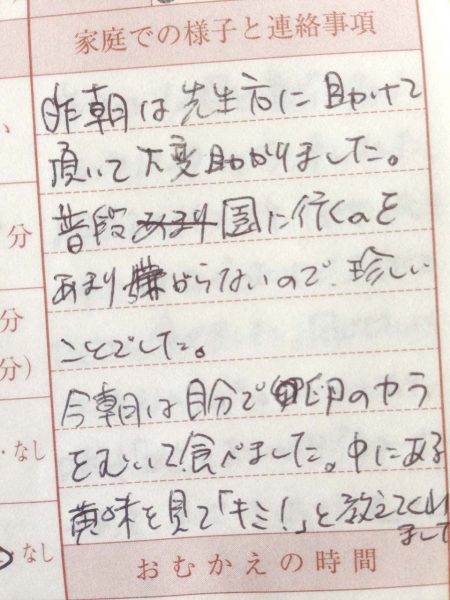 家庭での様子と連絡事項
昨朝は先生方に助けて
頂いて大変助かりました。
普段あまり園に行くのを
あまり嫌がらないので、珍しい
ことでした。
今朝は自分で卵のカラ
をむいて食べました。中にある
黄味を見て「キミ!」と教えてくれ
まして
おむかえの時間
、
分
分
分)
・なし
なし